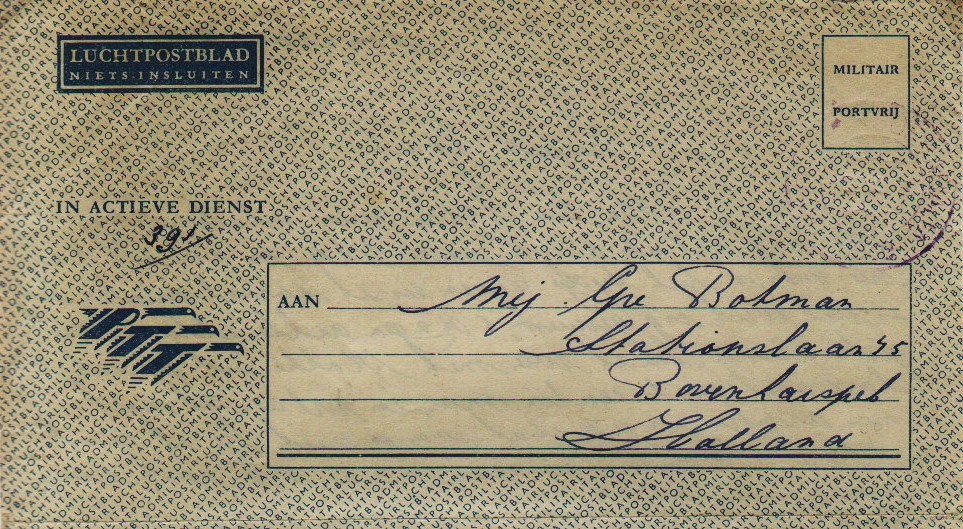 LUCHTPOSTBLAD
NIETS INSLUITEN
MILITAIR
PORTVRIJ
IN ACTIEVE DIENST
391
PTT
AAN Mej. Gre Botman
Stationslaan 45
Bovenkarspel
Holland